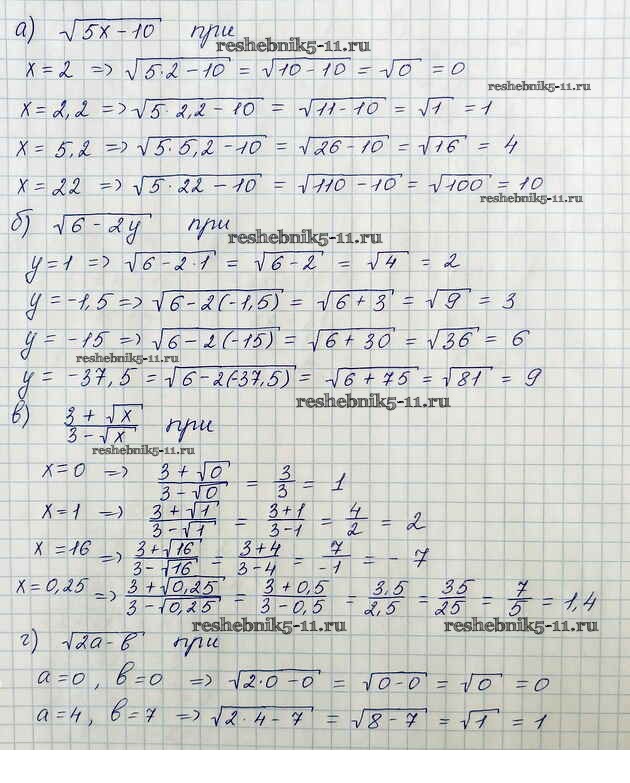 а) √(5x-10) при
reshebnik5-11.ru
x=2 => √(5·2-10) = √(10-10) = √0 = 0
reshebnik5-11.ru
x=2,2 => √(5·2,2-10) = √(11-10) = √1 = 1
x = 5,2 => √(5·5,2-10) = √(26-10) = √16 = 4
x = 22 => √(5·22-10) = √(110-10) = √100 = 10
reshebnik5-11.ru
б) √(6-2y) при
reshebnik5-11.ru
y=1 => √(6-2·1) = √(6-2) = √4 = 2
y = -1,5 => √(6-2(-1,5)) = √(6+3) = √9 = 3
y = -15 => √(6-2(-15)) = √(6+30) = √36 = 6
reshebnik5-11.ru
y = -37,5 = √(6-2(-37,5)) = √(6+75) = √81 = 9
reshebnik5-11.ru
в) (3+√x)/(3-√x) при
reshebnik5-11.ru
x=0 => (3+√0)/(3-√0) = 3/3 = 1
x=1 => (3+√1)/(3-√1) = (3+1)/(3-1) = 4/2 = 2
x=16 => (3+√16)/(3-√16) = (3+4)/(3-4) = 7/-1 = -7
x=0,25 => (3+√0,25)/(3-√0,25) = (3+0,5)/(3-0,5) = 3,5/2,5 = 35/25 = 7/5 = 1,4
reshebnik5-11.ru reshebnik5-11.ru
г) √(2a-b) при
a=0, b=0 => √(2·0-0) = √(0-0) = √0 = 0
a=4, b=7 => √(2·4-7) = √(8-7) = √1 = 1